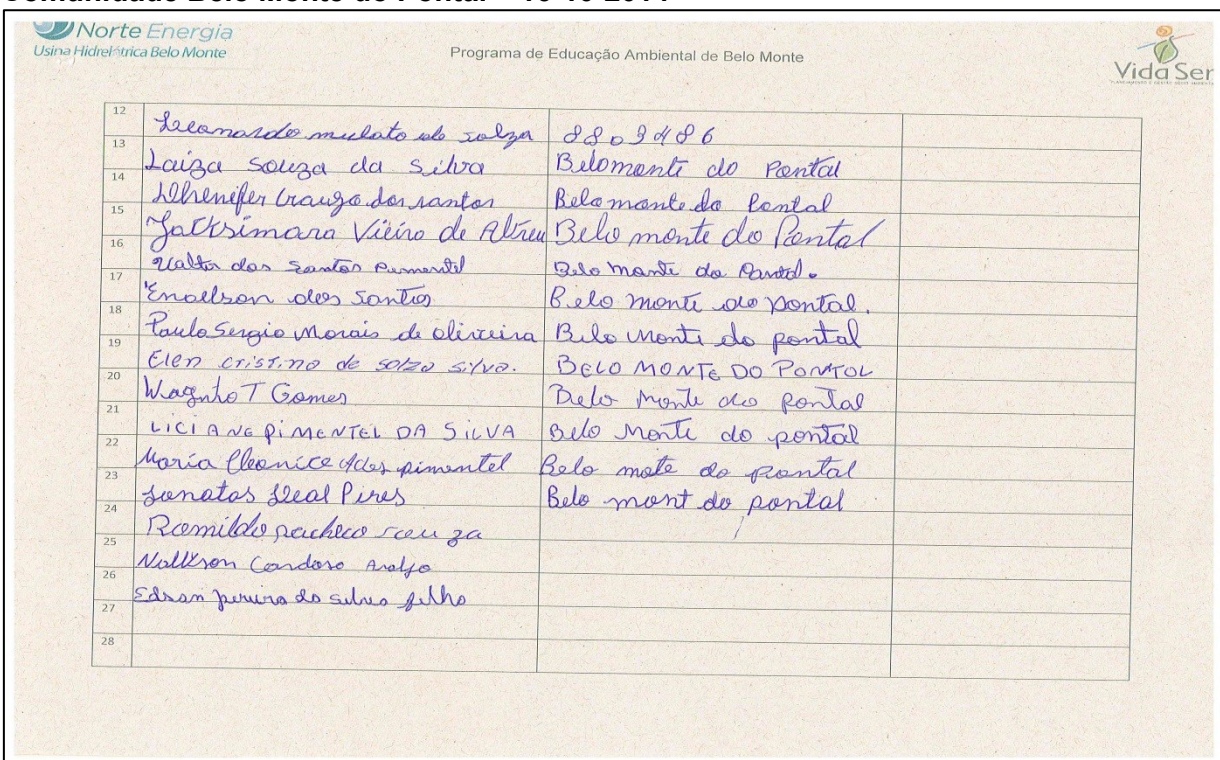 Norte Energia
Usina Hidrelétrica Belo Monte
Programa de Educação Ambiental de Belo Monte
Vida Ser
12 Leonardo mulato do solza 8809486
13 Laiza souza da Silva Belomonte do Pontal
14 dos santos Belo monte do Pontal
15 Vieira de Abreu Belo monte do Pontal
16 Ualter dos Santos Pumentel Belo Monte do Pontal.
17 dos Santos Belo monte do pontal.
18 Paulo Sergio Morais de oliveira Belo Monte do pontal
19 Elen cristino de solzo silva. BELO MONTE DO PONTOL
20 T Gomes Belo Monte do pontal
21 LICIANE PIMENTEL DA SILVA Belo Monte do pontal
22 Maria Cleonice pimentel Belo mote do pontal
23 Jonatas Leal Pires Belo mont do pontal
24 Romildo pacheco souza
25 Cardoso
26 Edson pereira da silva filho
27
28